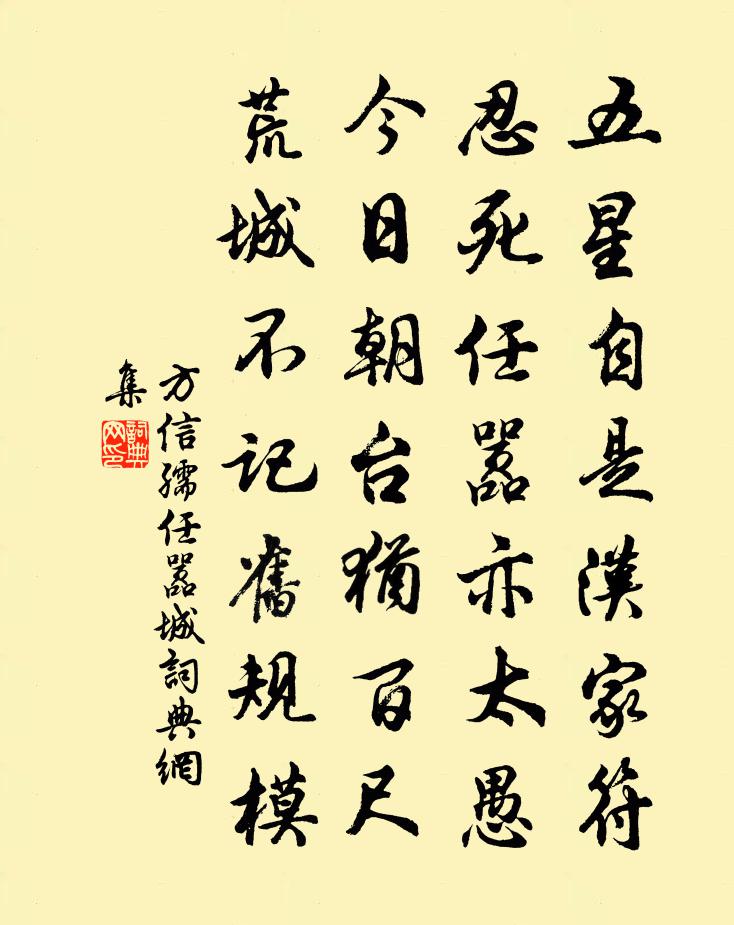 五星自是漢家符
忍死任囂亦太愚
今日朝台猶百尺
荒城不記舊規模
方信孺任囂城詞典網
集
詞典
网印